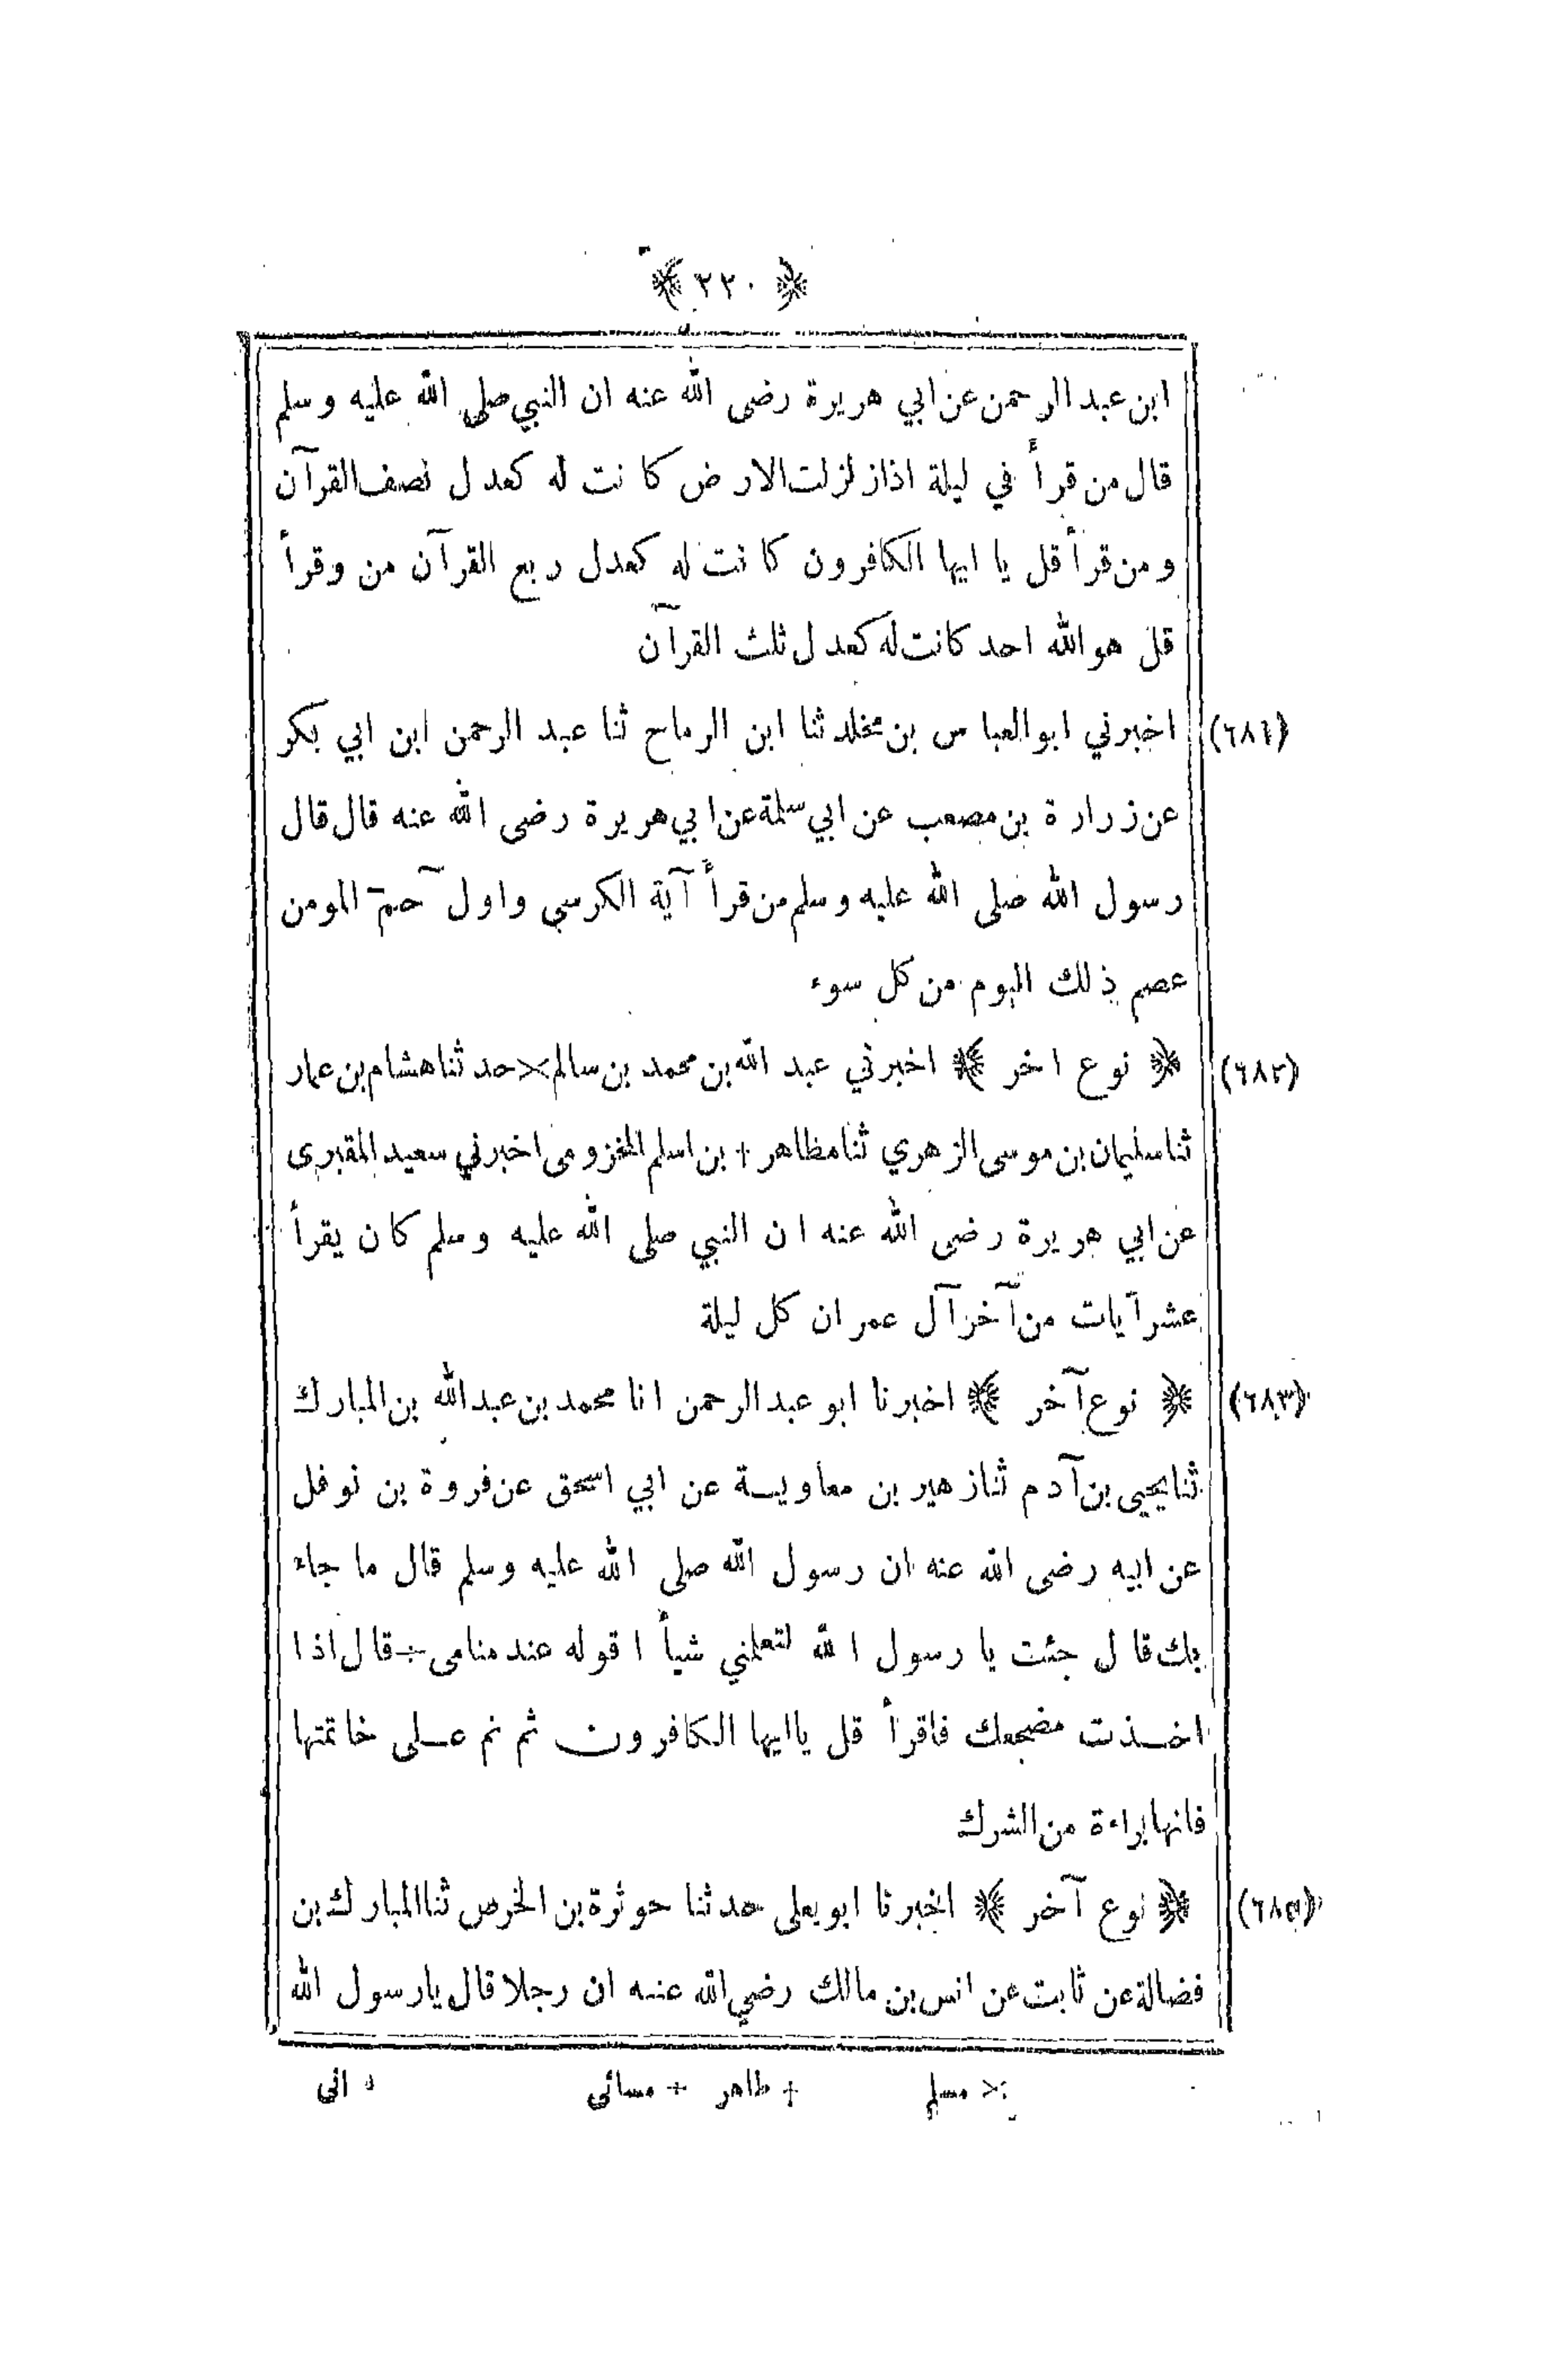 ﴿ ٢٢٠ ﴾
ابن عبد الرحمن عن ابي هريرة رضى الله عنه ان النبي صلى الله عليه وسلم
قال من قرأ في ليلة اذا زلزلت الارض كانت له كعدل نصف القرآن
ومن قرأ قل يا ايها الكافرون كانت له كعدل ربع القرآن من وقرأ
قل هو الله احد كانت له كعدل ثلث القرآن
(٦٨١) اخبرني ابو العباس بن مخلد ثنا ابن الرماح ثنا عبد الرحمن ابن ابي بكر
عن زرارة بن مصعب عن ابي سلمة عن ابي هريرة رضى الله عنه قال قال
رسول الله صلى الله عليه وسلم من قرأ آية الكرسي واول حم المومن
عصم ذلك اليوم من كل سوء
(٦٨٢) ﴿ نوع اخر ﴾ اخبرني عبد الله بن محمد بن سالم × حدثنا هشام بن عمار
ثنا سليمان بن موسى الزهري ثنا مظاهر + بن اسلم المخزومى اخبرني سعيد المقبرى
عن ابي هريرة رضى الله عنه ان النبي صلى الله عليه وسلم كان يقرأ
عشر آيات من آخر آل عمران كل ليلة
(٦٨٣) ﴿ نوع آخر ﴾ اخبرنا ابو عبد الرحمن انا محمد بن عبد الله بن المبارك
ثنا يحيى بن آدم ثنا زهير بن معاوية عن ابي اسحق عن فروة بن نوفل
عن ابيه رضى الله عنه ان رسول الله صلى الله عليه وسلم قال ما جاء
بك قال جئت يا رسول الله لتعلمني شيأ اقوله عند منامى ÷ قال اذا
اخذت مضجعك فاقرأ قل يا ايها الكافرون ثم نم على خاتمتها
فانها براءة من الشرك
﴿ نوع آخر ﴾ اخبرنا ابو يعلى حدثنا حوثرة بن الخرص ثنا المبارك بن
فضالة عن ثابت عن انس بن مالك رضي الله عنه ان رجلا قال يا رسول الله
× مسلم + طاهر + مسائى انى